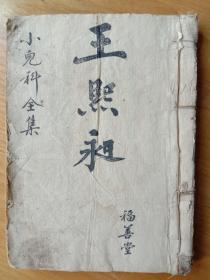 小兒科全集
王熙昶
福善堂